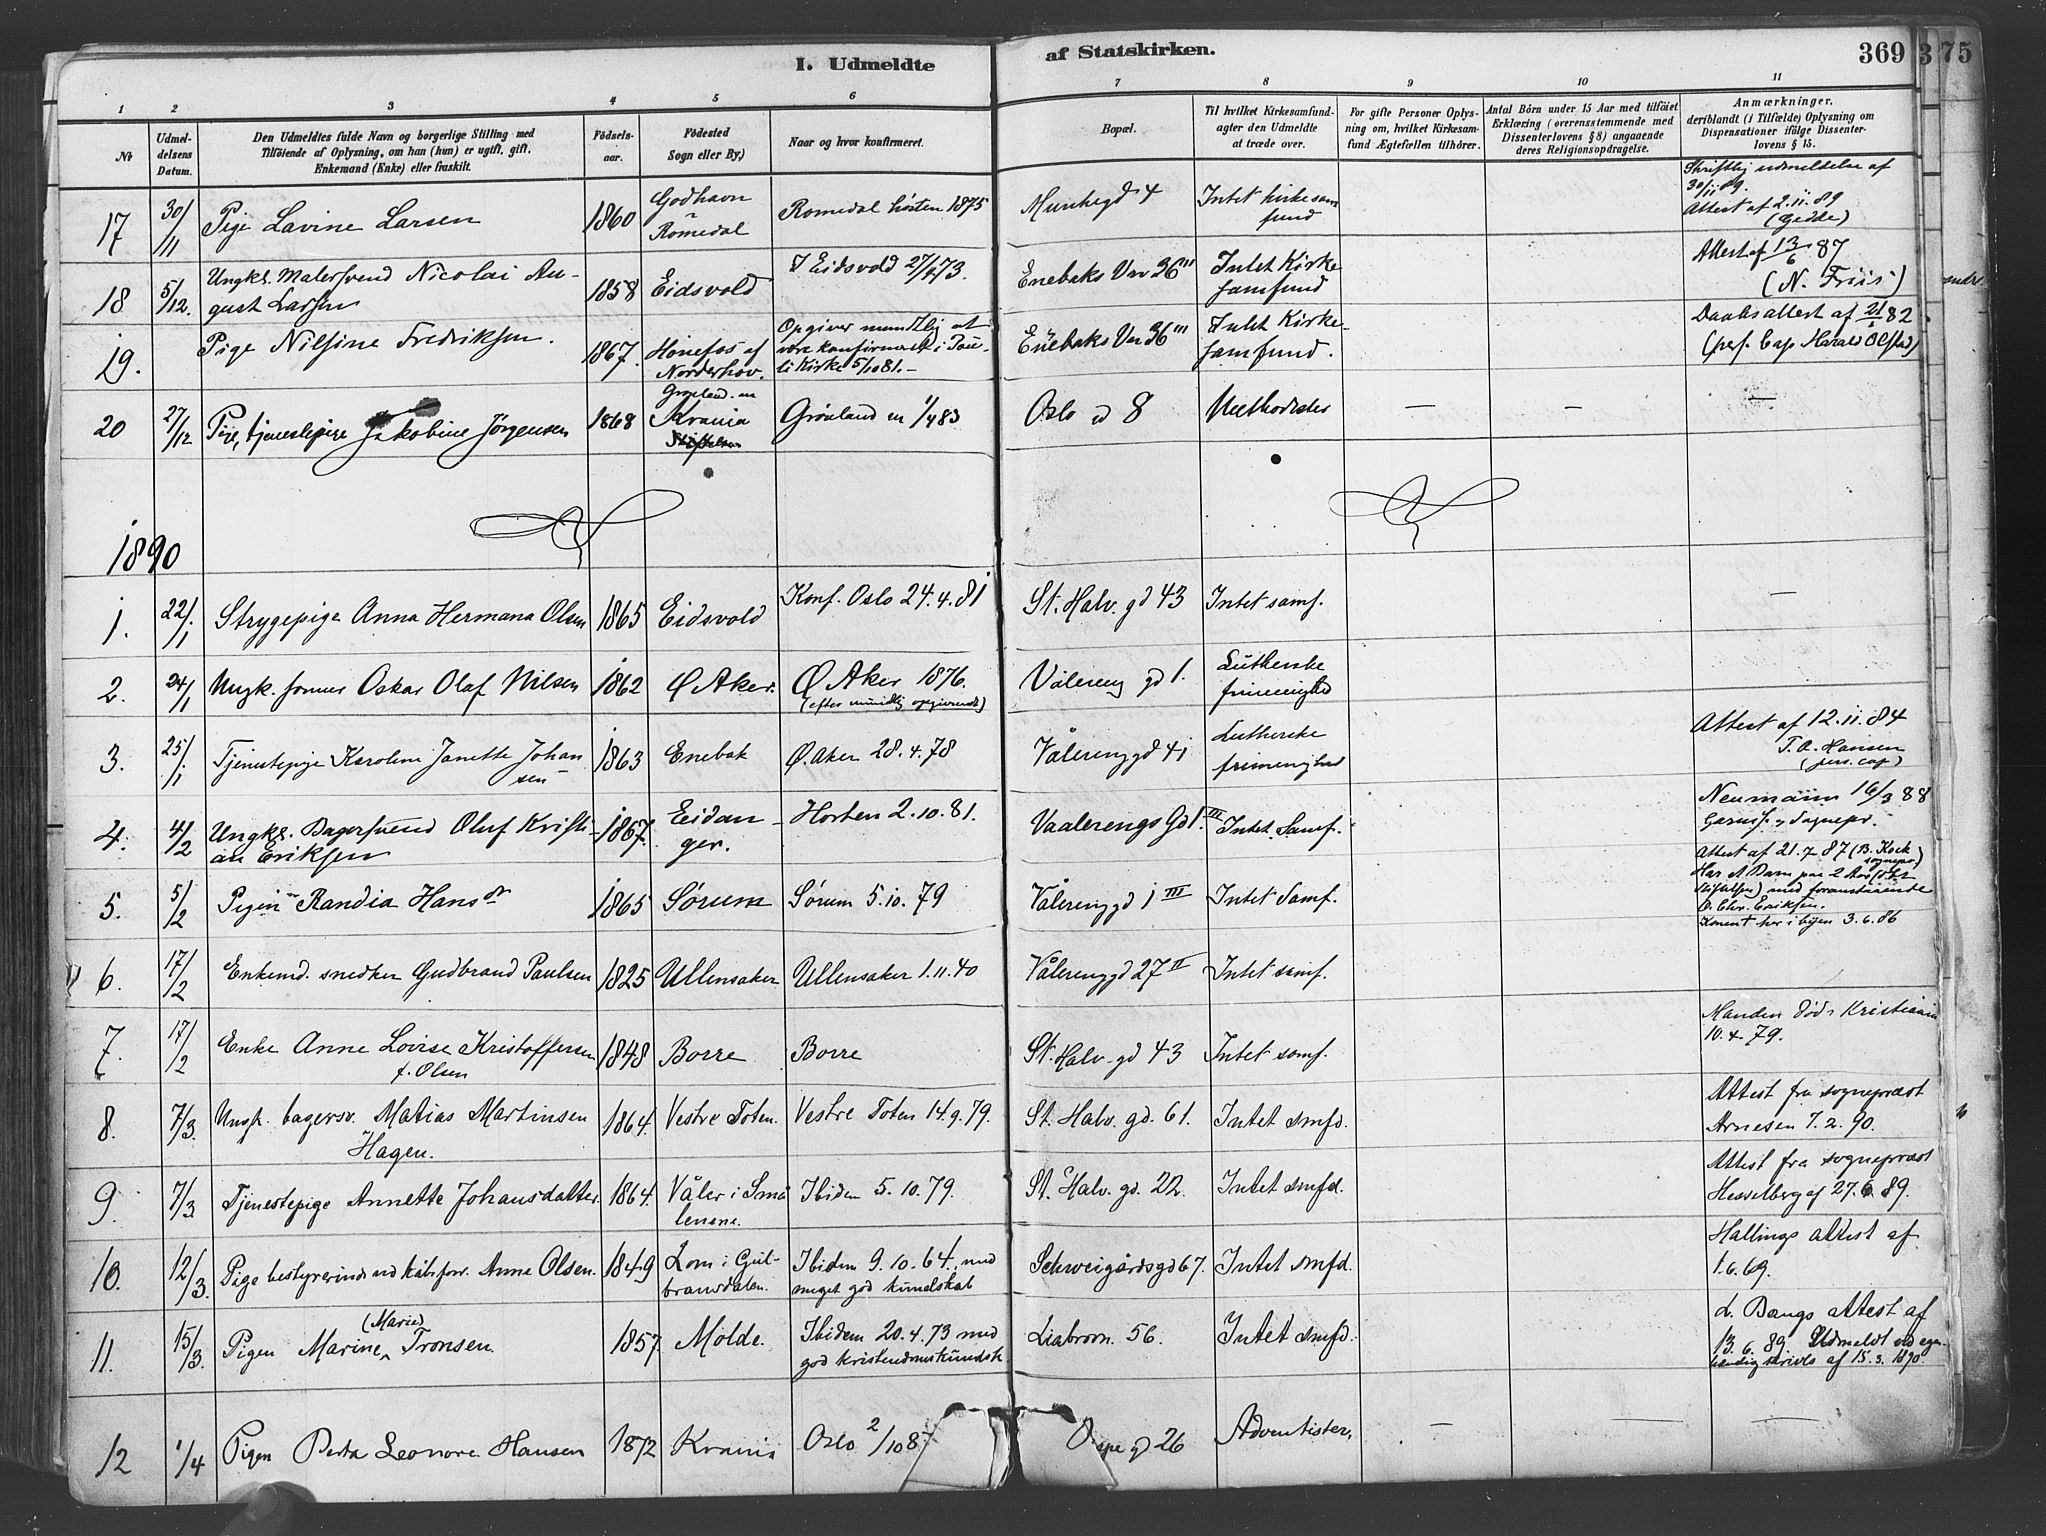 I. Udmeldte
af Statskirken.
369
375
1 2 3 4 5 6 7 8 9 10 11
No
Udmel-
delsens
Datum.
Den Udmeldtes fulde Navn og borgerlige Stilling med
Tilføiende af Oplysning, om han (hun) er ugift, gift,
Enkemand (Enke) eller fraskilt.
Fødsels-
aar.
Fødested
Sogn eller By,)
Naar og hvor konfirmeret.
Bopæl.
Til hvilket Kirkesamfund-
agter den Udmeldte
at træde over.
For gifte Personer Oplys-
ning om, hvilket Kirkesam-
fund Ægtefællen tilhører.
Antal Børn under 15 Aar med tilføiet
Erklæring (overensstemmende med
Dissenterlovens § 8) angaaende
deres Religionsopdragelse.
Anmærkninger,
deriblandt (i Tilfælde) Oplysning om
Dispensationer ifølge Dissenter-
lovens § 15.
17
30/11
Pige Lavine Larsen
1860
Godhavn
Romedal
Romedal høsten 1875
Munkegd 4
Intet kirkesam
fund
Skriftlig udmeldelse af
30/11 89.
Attest af 2.11.89
(Gedde)
18
5/12.
Ungkl. Malersvend Nicolai Au-
gust Larsen
1858
Eidsvold
I Eidsvold 27/4 73.
Enebaks Vn 36 III
Intet Kirke
samfund
Attest af 13/6 87
(N. Friis)
19.
Pige Nilsine Fredriksen.
1867.
Hønefos af
Norderhov.
Opgiver mundtlig at
være konfirmeret i Pau-
li Kirke 5/10 81. –
Enebaks Vn 36 III
Intet Kirke-
samfund.
Daabsattest af 21/1 82
(pers. Cap Harald Olstad)
20
27/12
Pige, tjenestepige Jakobine Jørgensen
1868
Grønland
Krania
Stiftelsen
Grønland 1/4 83
Oslo gd 8
Methodister
— — —
1890
1.
22/1
Strygepige Anna Hermana Olsen
1865
Eidsvold
Konf. Oslo 24.4.81
St. Halv. gd 43
Intet samf.
—
2.
24/1
Ungk. Oskar Olaf Nilsen
1862
Ø Aker.
Ø Aker 1876.
(efter mundtlig opgivende)
Våtereng gd 1.
Lutherske
frimenighed
3.
25/1
Tjenestepige Karoline Janette Johan
sen
1863
Enebak
Ø. Aker 28.4.78
Vålerenggd 41
Lutherske
frimenighed
Attest af 12.11.84
T. A. Hansen
(pers. cap)
4.
4/2
Ungkl. Bagersvend Oluf Kristi-
an Eriksen
1867.
Eidan
ger.
Horten 2.10.81.
Vaalerengs Gd 1. III
Intet Samf.
Neumann 16/3 88
Garnis. og Sognepr.
5.
5/2
Pigen Randia Hansdr
1865
Sørum
Sørum 5.10.79
Vålerenggd 1 III
Intet Samf.
Attest af 21.7.87 (B. Kock
sognepr.)
Har et Barn paa 2 Aar
med foranstaaende
O. Chr. Eriksen.
her i byen 3.6.86
6.
17/2
Enkemd. snedker Gudbrand Paulsen
1825
Ullensaker
Ullensaker 1.11.40
Vålerenggd 27 II
Intet samf.
7.
17/2
Enke Anne Lovise Kristoffersen
f. Olsen
1848
Borre
Borre
St. Halv. gd 43
Intet samf.
Manden død i Kristiania
10.4.79.
8.
7/3.
Ungk. bagersv. Matias Martinsen
Hagen.
1864.
Vestre Toten.
Vestre Toten 14.9.79.
St. Halv. gd. 61.
Intet smfd.
Attest fra sogneprest
Arnesen 7.2.90.
9.
7/3
Tjenestepige Annette Johansdatter.
1864.
Våler i Små
lenene.
Ibidem 5.10.79.
St. Halv. gd. 22.
Intet smfd.
Attest fra sogneprest
Hesselberg af 27.6.89.
10.
12/3.
Pige bestyrerinde ved Anne Olsen.
1849
Lom i Gul-
bransdalen.
Ibidem 9.10.64. med
meget god kundskab
Schweigårdsgd 67.
Intet smfd.
Hallings attest af
1.6.69.
11.
15/3.
Pigen Marine (Marie) Tronsen.
1857
Molde.
Ibidem 20.4.73 med
god kristendomskundsk
Liabrovn. 56.
Intet smfd.
d. Bangs attest af
13.6.89. Udmeldt ved egen-
hændig skrivls af 15.3.1890
12
1/4
Pigen Petra Leonore Hansen
1872
Krania
Oslo 2/10 87
gd 26
Adventister.
— — —